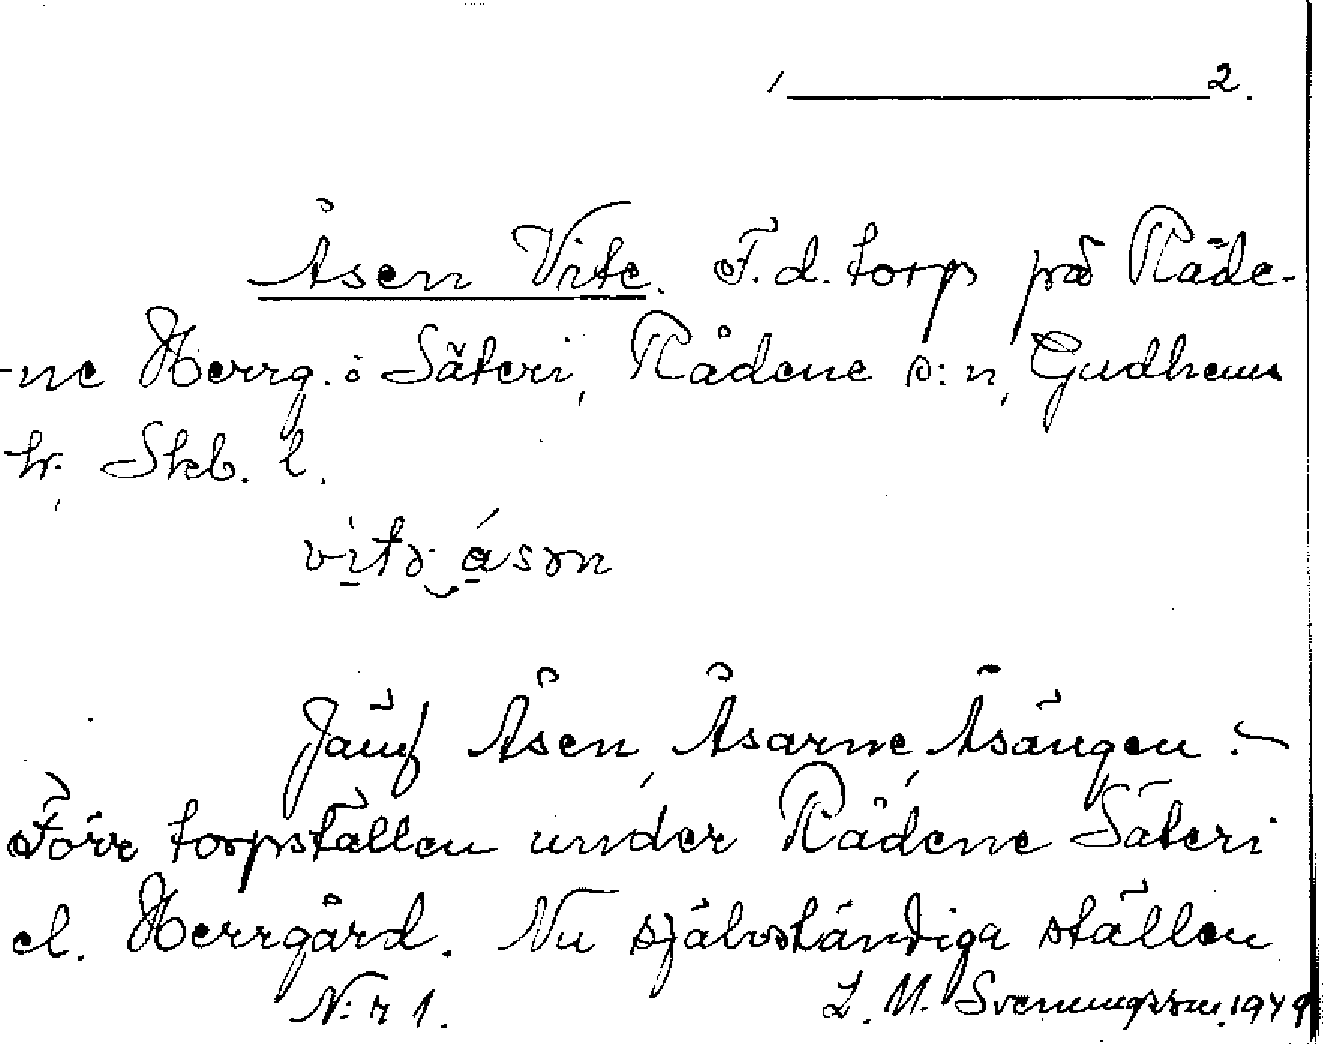 1 2.
Åsen Vite. F. d. torp på Råde-
-ne Herrg. o Säteri, Rådene s:n, Gudhems
hr, Skb. l.
vìtə ásən
Jämf Åsen, Åsarne, Åsängen. -
Förr torpställen under Rådene Säteri
el. Herrgård. Nu självständiga ställen
N:r 1. L. M. Svenungsson. 1949